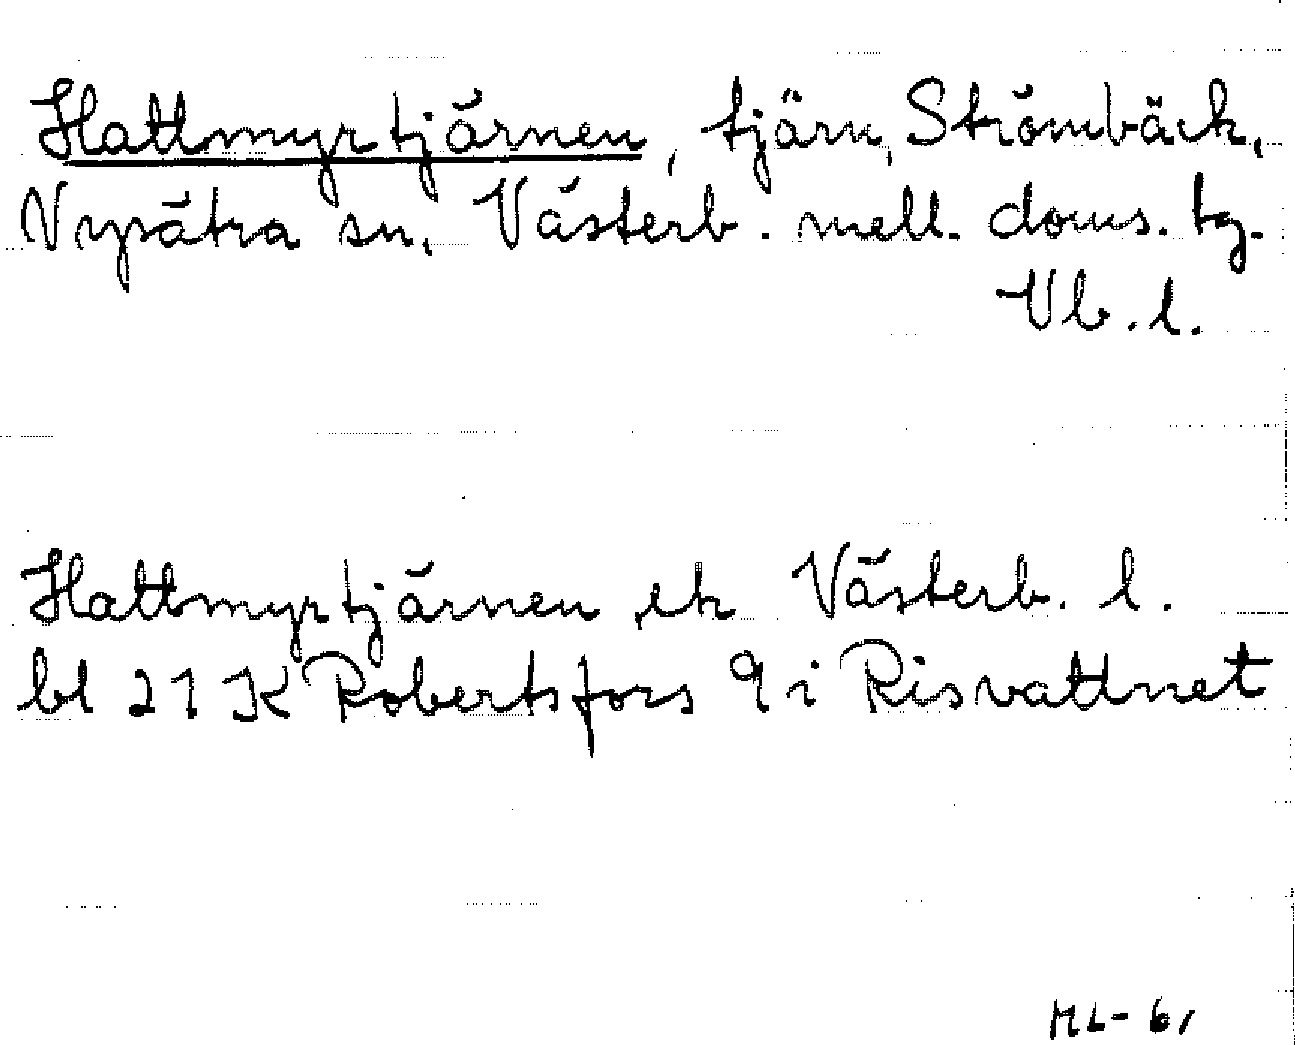 Hattmyrtjärnen, tjärn, Strömbäck,
Nysätra sn, Västerb. mell. doms. tg.
Vb. l.
Hattmyrtjärnen ek Västerb. l.
bl 21 K Robertsfors 9 i Risvattnet
ML-61